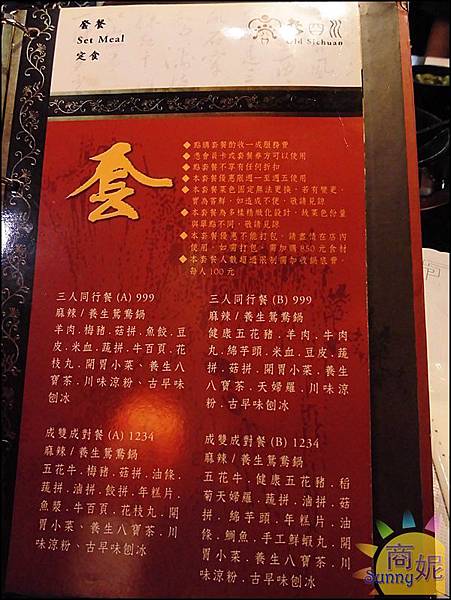 套餐
Set Meal
定食
老四川
Old Sichuan
套
◆點購套餐酌收一成服務費
◆憑會員卡或套餐券方可以使用
◆點套餐不享有任何折扣
◆本套餐優惠限週一至週五使用
◆本套餐菜色固定無法更換，若有變更，
實為嘗鮮，如造成不便，敬請見諒
◆本套餐為多樣精緻化設計，故菜色份量
與單點不同，敬請見諒
◆本套餐優惠不能打包，請盡情在店內
使用，如需打包，需加購850元食材
◆本套餐人數超過限制需加收鍋底費，
每人100元
三人同行餐 (A) 999
麻辣/養生鴛鴦鍋
羊肉．梅豬．菇拼．魚餃．豆
皮．米血．蔬拼．牛百頁．花
枝丸．開胃小菜．養生八
寶茶．川味涼粉、古早味
刨冰
三人同行餐 (B) 999
麻辣/養生鴛鴦鍋
健康五花豬．羊肉．牛肉
丸．綿芋頭．米血．豆皮．蔬
拼．菇拼．開胃小菜．養生
八寶茶．天婦羅．川味涼
粉．古早味刨冰
成雙成對餐 (A) 1234
麻辣/養生鴛鴦鍋
五花牛．梅豬．菇拼．油條．
蔬拼．滷拼．餃拼．年糕片．
魚漿．牛百頁．花枝丸．開
胃小菜、養生八寶茶．川
味涼粉、古早味刨冰
成雙成對餐 (B) 1234
麻辣/養生鴛鴦鍋
五花牛．健康五花豬．稻
荷天婦羅．蔬拼．滷拼．菇
拼．綿芋頭．年糕片．油
條．鯛魚．手工鮮蝦丸．開
胃小菜．養生八寶茶．川
味涼粉．古早味刨冰
商妮
Sunny